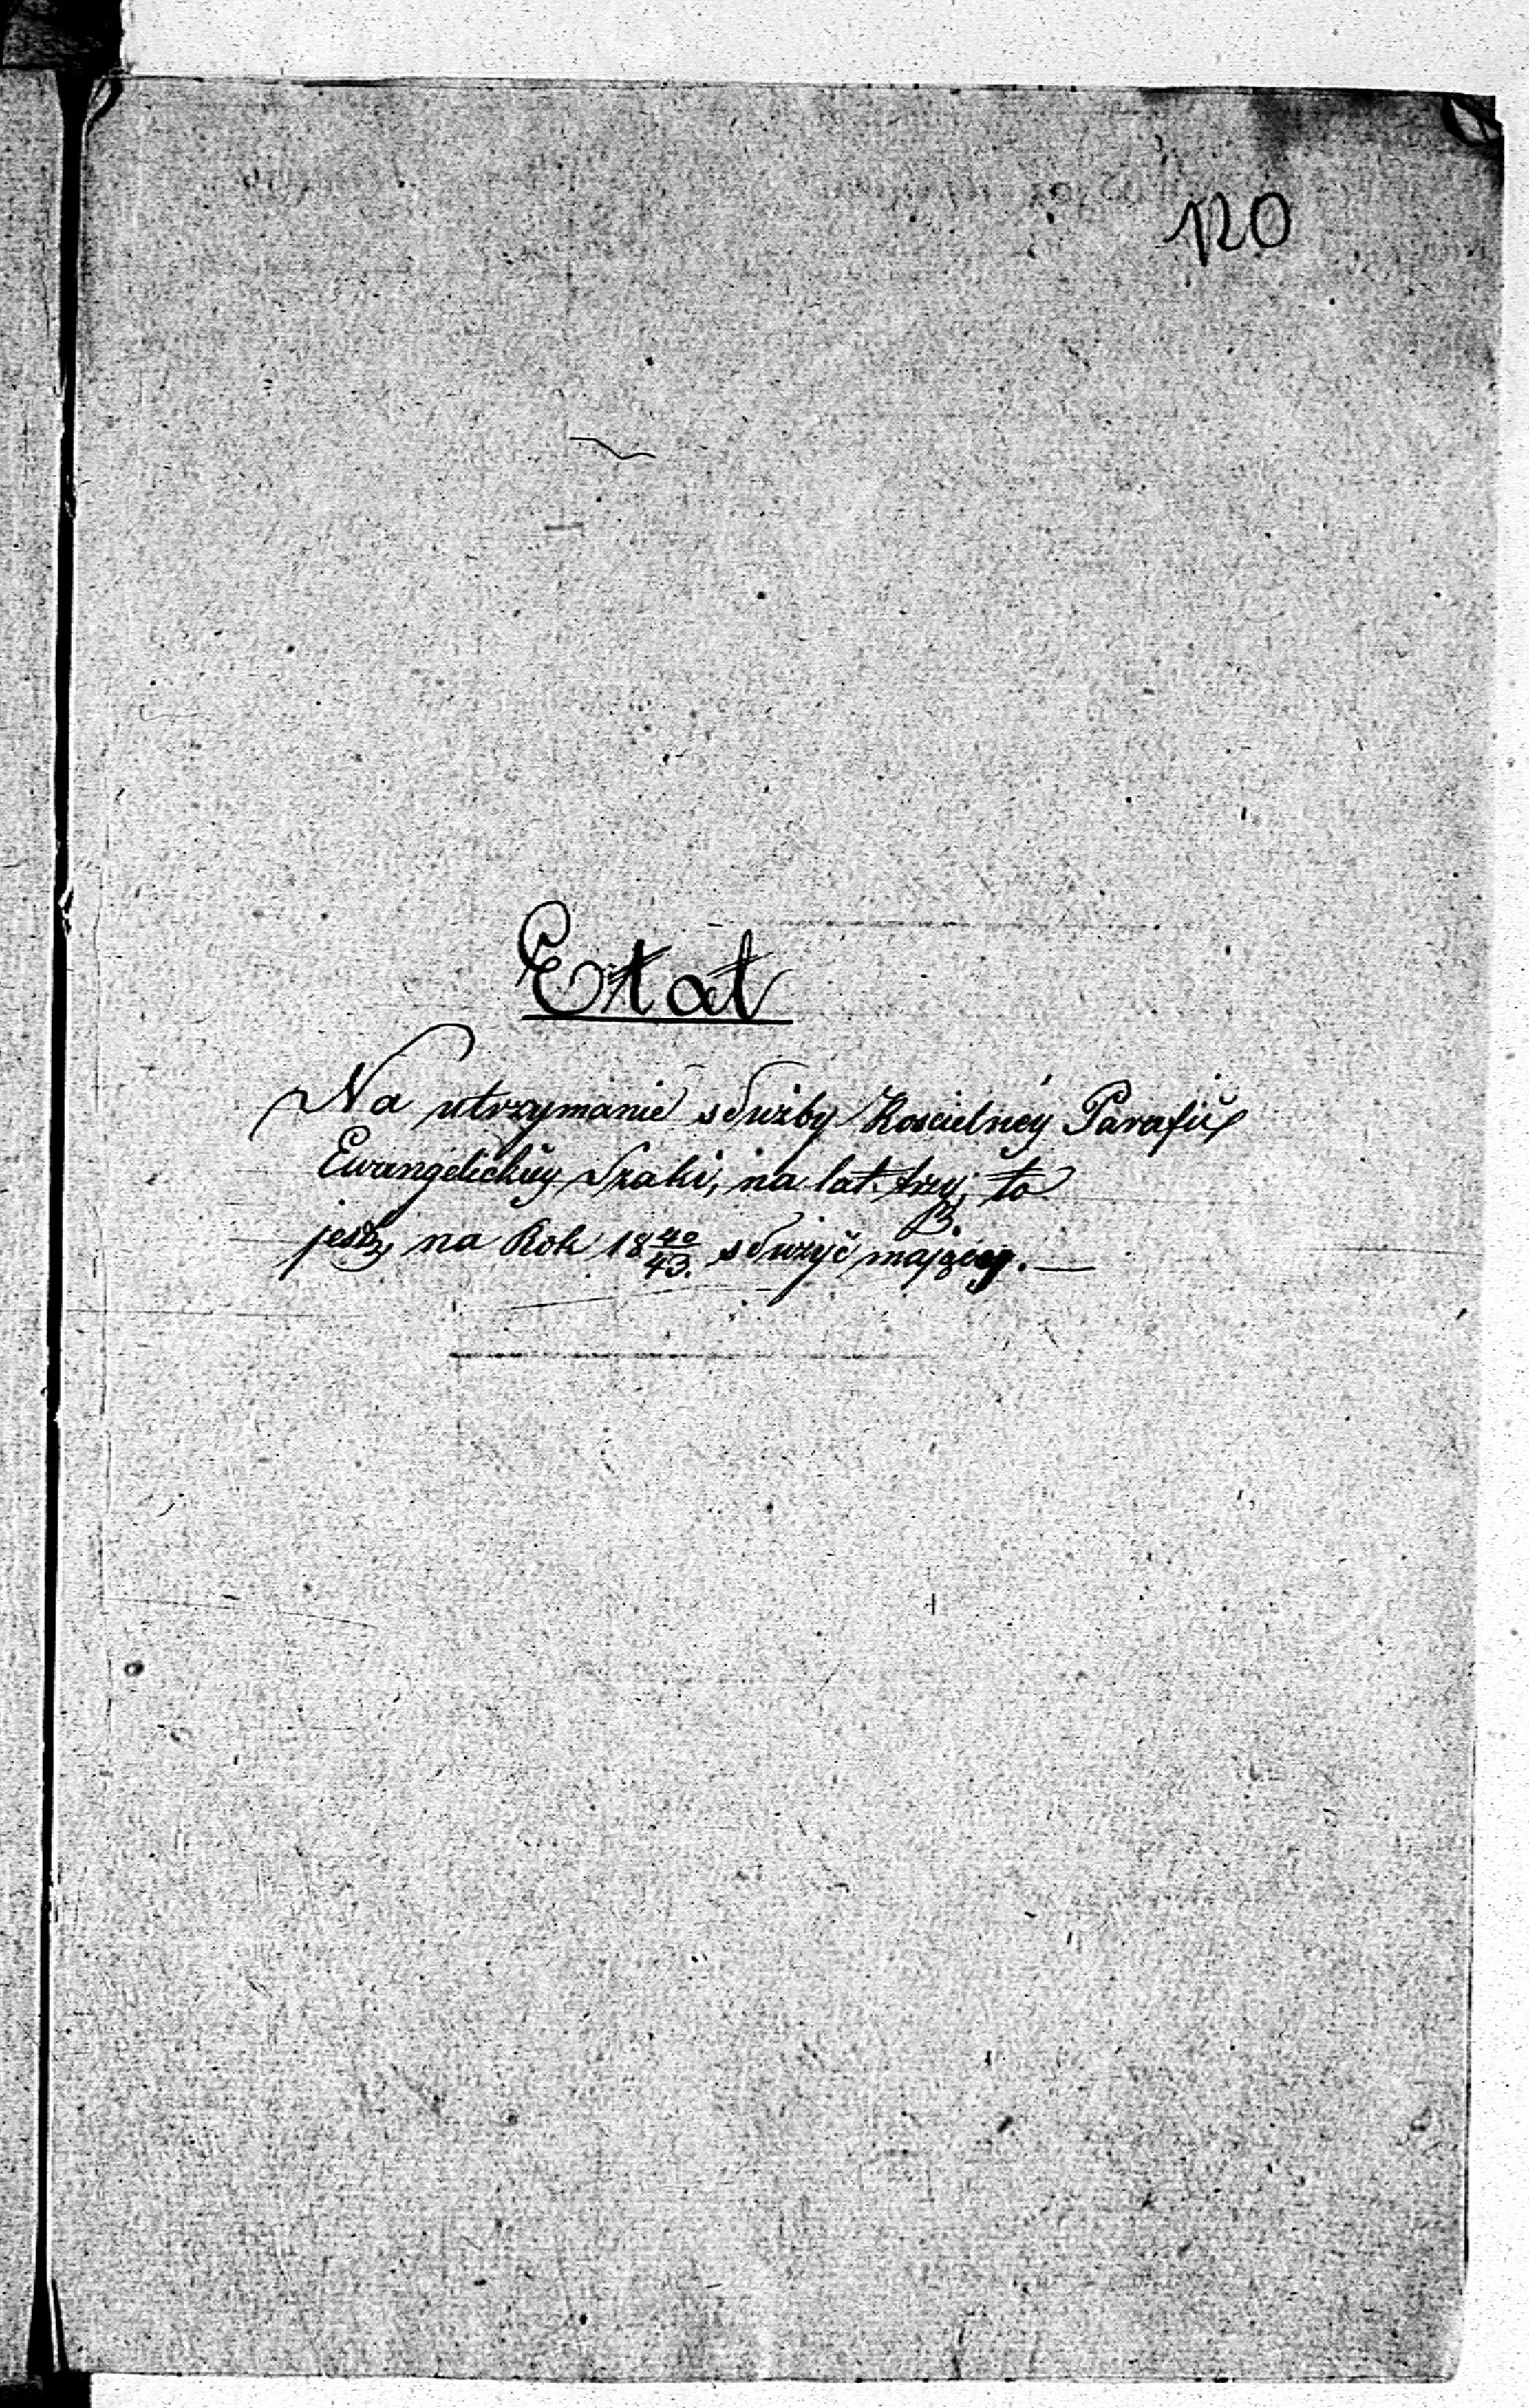 120
Etat
Na utrzymanie służby Koscielney Parafii
Ewangelickiey Szaki, na lat trzy, to
3.
jest, na Rok 18 40/43. służyć mający. —